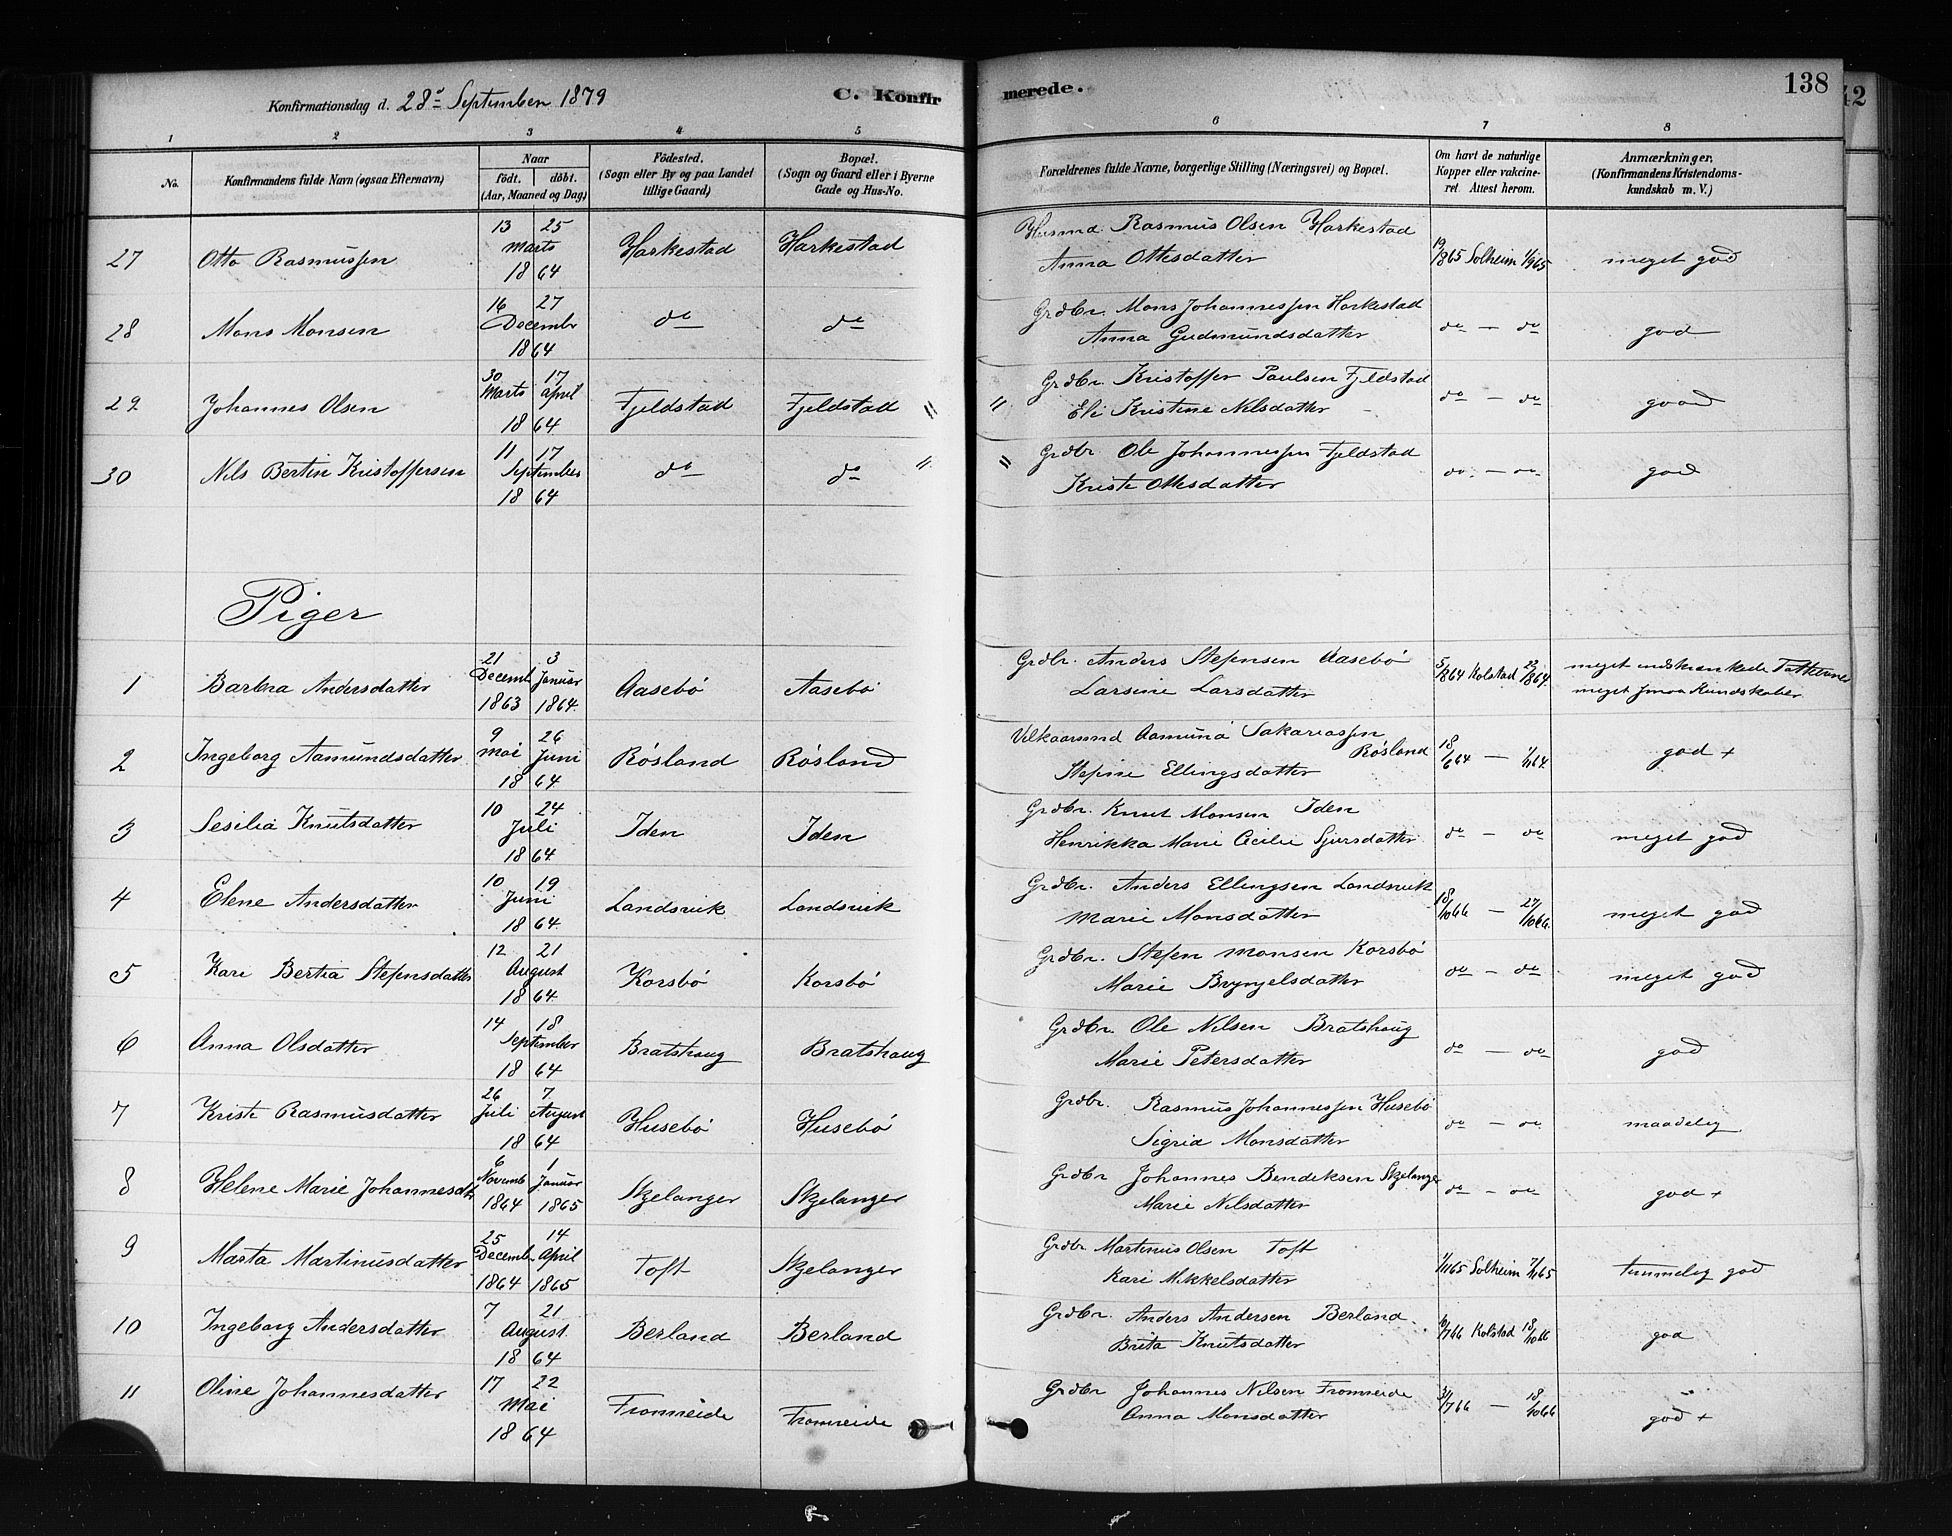 Konfirmationsdag d. 28de September 1879 C. Konfirmerede. 138
42
1 2 3 4 5 6 7 8
No.
Konfirmandens fulde Navn (ogsaa Efternavn)
Naar födt. döbt. (Aar, Maaned og Dag)
Födested. (Sogn eller By og paa Landet tillige Gaard)
Bopæl. (Sogn og Gaard eller i Byerne Gade og Hus-No.
Forældrenes fulde Navne, borgerlige Stilling (Næringsvei) og Bopæl.
Om havt de naturlige Kopper eller vakcineret. Attest herom.
Anmærkninger. (Konfirmandens Kristendomskundskab m. V.)
27 Otto Rasmussen 13 25 Marts 1864 Harkestad Harkestad Husmd. Rasmus Olsen Harkestad
Anna Ottesdatter 19/8 65 Solheim 1/9 65 meget god
28 Mons Monsen 16 27 Decembr 1864 do do Grdbr. Mons Johannessen Harkestad
Anna Gudmundsdatter do — do god
29 Johannes Olsen 30 Marts 17 April 1864 Fjeldstad Fjeldstad " " Grdbr. Kristoffer Paulsen Fjeldstad
Eli Kristine Nilsdatter do — do good
30 Nils Bertin Kristoffersen 11 17 September 1864 do do " " Grdbr Ole Johannessen Fjeldstad
Kriste Ottesdatter do — do god
Piger
1 Barbra Andersdatter 21 Decemb 1863 3 Januar 1864 Aasebö Aasebö Grdbr. Anders Stefensen Aasebö
Larsine Larsdatter 5/8 64 Kolstad 22/8 64 meget indskrænkede
meget smaa Kundskaber
2 Ingeborg Aamundsdatter 9 Mai 26 Juni 1864 Rösland Rösland Vilkaarsmd Aamund Sakariassen Rösland
Stefine Ellingsdatter 18/6 64 — god +
3 Sesilia Knutsdatter 10 24 Juli 1864 Iden Iden Grdbr. Knut Monsen Iden
Henrikka Marie Cecilie Sjursdatter do — do meget god
4 Elene Andersdatter 10 19 Juni 1864 Landsvik Landsvik Grdbr. Anders Ellingsen Landsvik
Marie Monsdatter 18/10 66 — 27/10 66 meget god
5 Kari Bertia Stefensdatter 12 21 August 1864 Korsbö Korsbö Grdbr. Stefen Monsen Korsbö
Marie Brynjelsdatter do — do meget god
6 Anna Olsdatter 14 18 September 1864 Bratshaug Bratshaug Grdbr. Ole Nilsen Bratshaug
Marie Petersdatter do — do god
7 Kriste Rasmusdatter 26 Juli 7 August 1864 Husebö Husebö Grdbr. Rasmus Johannessen Husebö
Sigrid Monsdatter do — do maadelig
8 Helene Marie Johannesdtr 6 Novemb 1864 1 Januar 1865 Skjelanger Skjelanger Grdbr Johannes Bendiksen Skjelanger
Marie Nilsdatter do — do god +
9 Marta Martinusdatter 25 Decembr 1864 14 April 1865 Toft Skjelanger Grdbr Martinus Olsen Toft
Kari Mikkelsdatter 1/11 65 Solheim 7/11 65 temmelig god
10 Ingeborg Andersdatter 7 21 August 1864 Berland Berland Grdbr. Anders Andersen Berland
Brita Knutsdatter Kolstad 18/10 66 god
11 Oline Johannesdatter 17 22 Mai 1864 Fromreide Fromreide Grdbr Johannes Nilsen Fromreide
Anna Monsdatter 31/7 66 — 18/10 66 god +